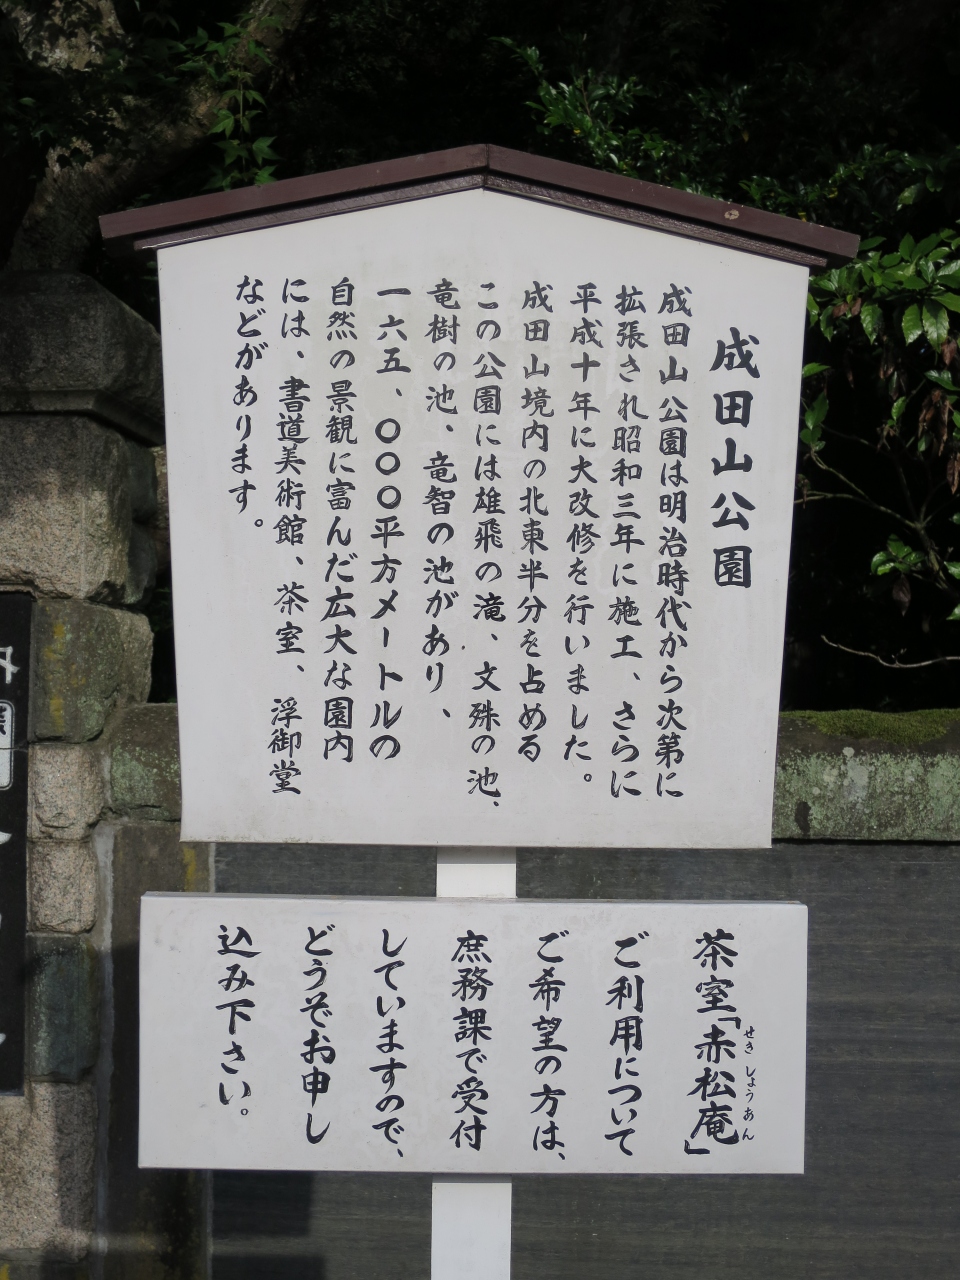 成田山公園
成田山公園は明治時代から次第に
拡張され昭和三年に施工、さらに
平成十年に大改修を行いました。
成田山境内の北東半分を占める
この公園には雄飛の滝、文殊の池、
竜樹の池、竜智の池があり、
一六五、〇〇〇平方メートルの
自然の景観に富んだ広大な園内
には、書道美術館、茶室、浮御堂
などがあります。
茶室「赤松庵」
せきしょうあん
ご利用について
ご希望の方は、
庶務課で受付
していますので、
どうぞお申し
込み下さい。